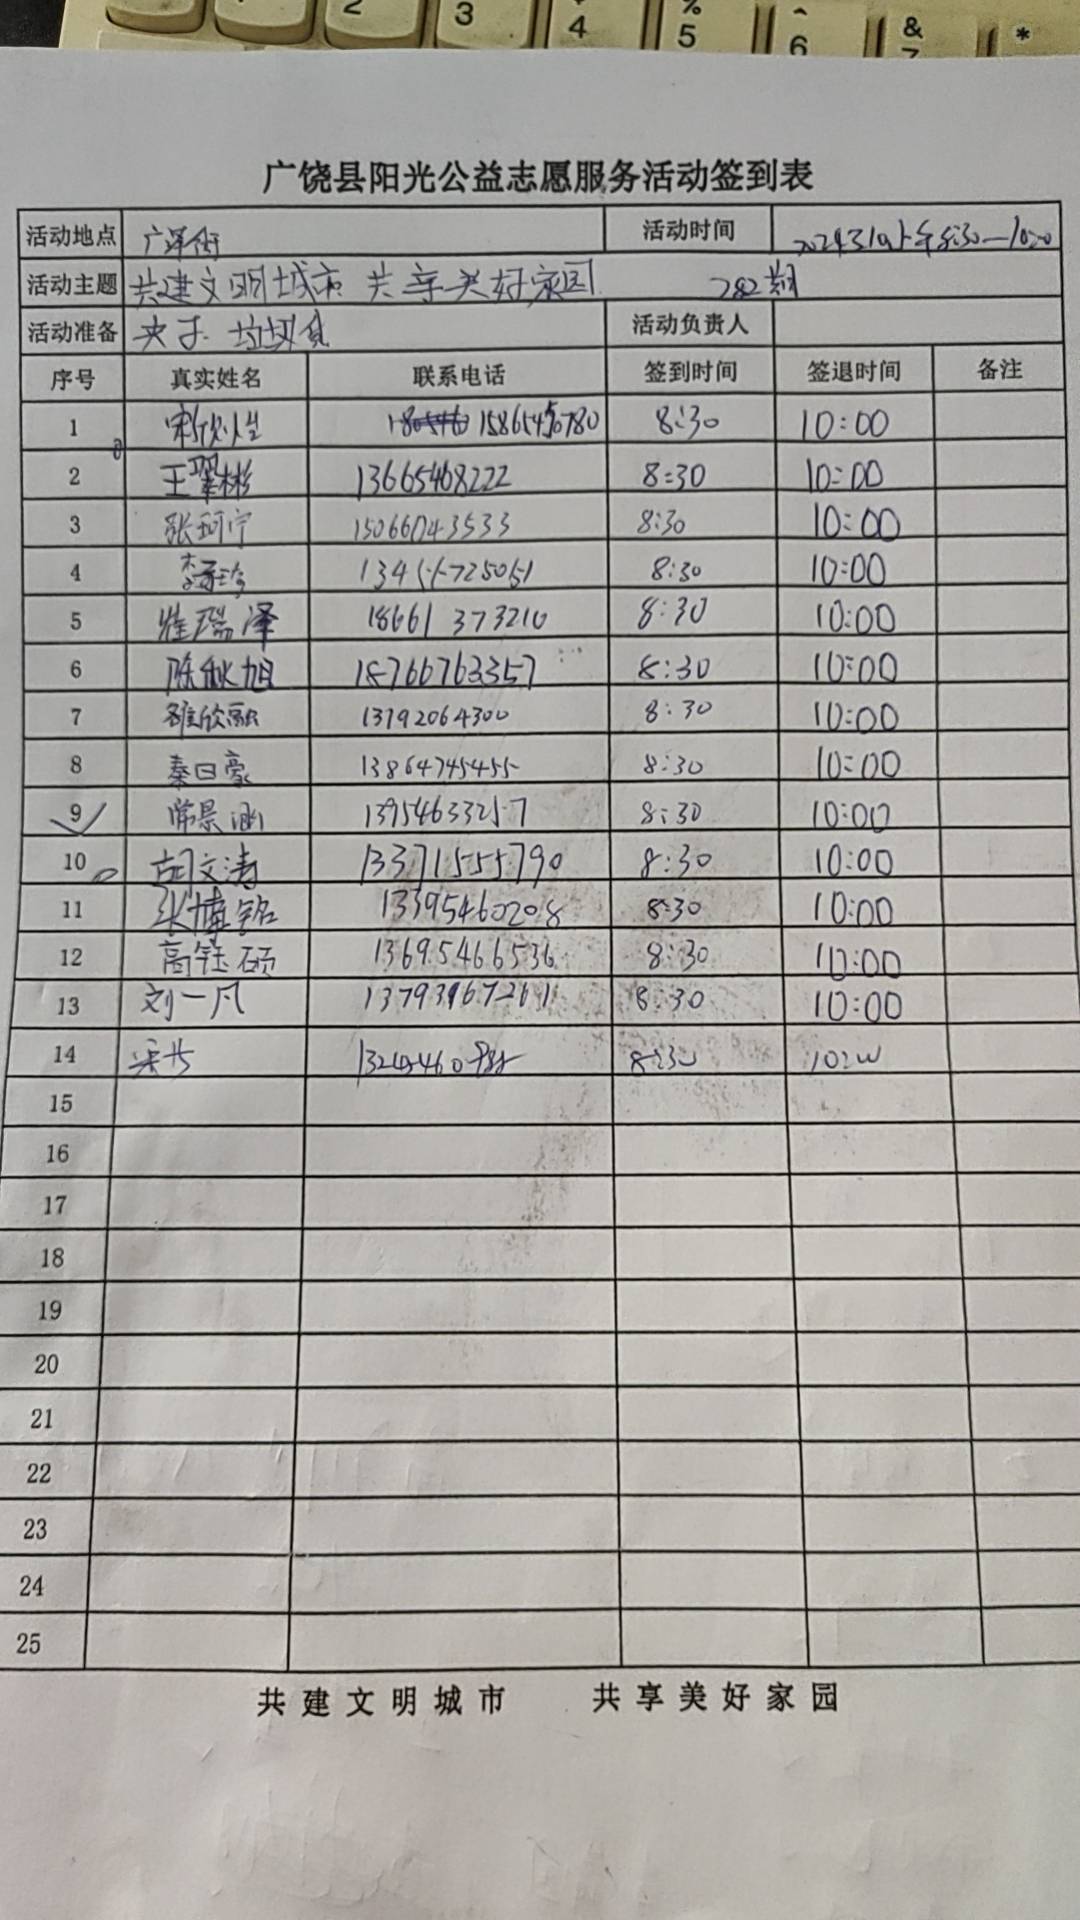 2 3 4 % 5 ^ 6 & 7 *
广饶县阳光公益志愿服务活动签到表
活动地点 广泽街 活动时间
活动主题 共建文明城市 共享美好家园 282期
活动准备 夹子 垃圾袋 活动负责人
序号 真实姓名 联系电话 签到时间 签退时间 备注
1 8:30 10:00
2 王翠彬 13665468222 8:30 10:00
3 张珂宁 15066043533 8:30 10:00
4 8:30 10:00
5 崔瑞泽 18661373210 8:30 10:00
6 陈秋旭 18766763357 8:30 10:00
7 雒欣融 13792064300 8:30 10:00
8 秦日豪 13864745455 8:30 10:00
9 常景涵 13954633257 8:30 10:00
10 胡文涛 13371555790 8:30 10:00
11 张博铭 13395460208 8:30 10:00
12 高钰硕 13695466536 8:30 10:00
13 刘一凡 13793967261 8:30 10:00
14 8:30 10:00
15
16
17
18
19
20
21
22
23
24
25
共建文明城市 共享美好家园